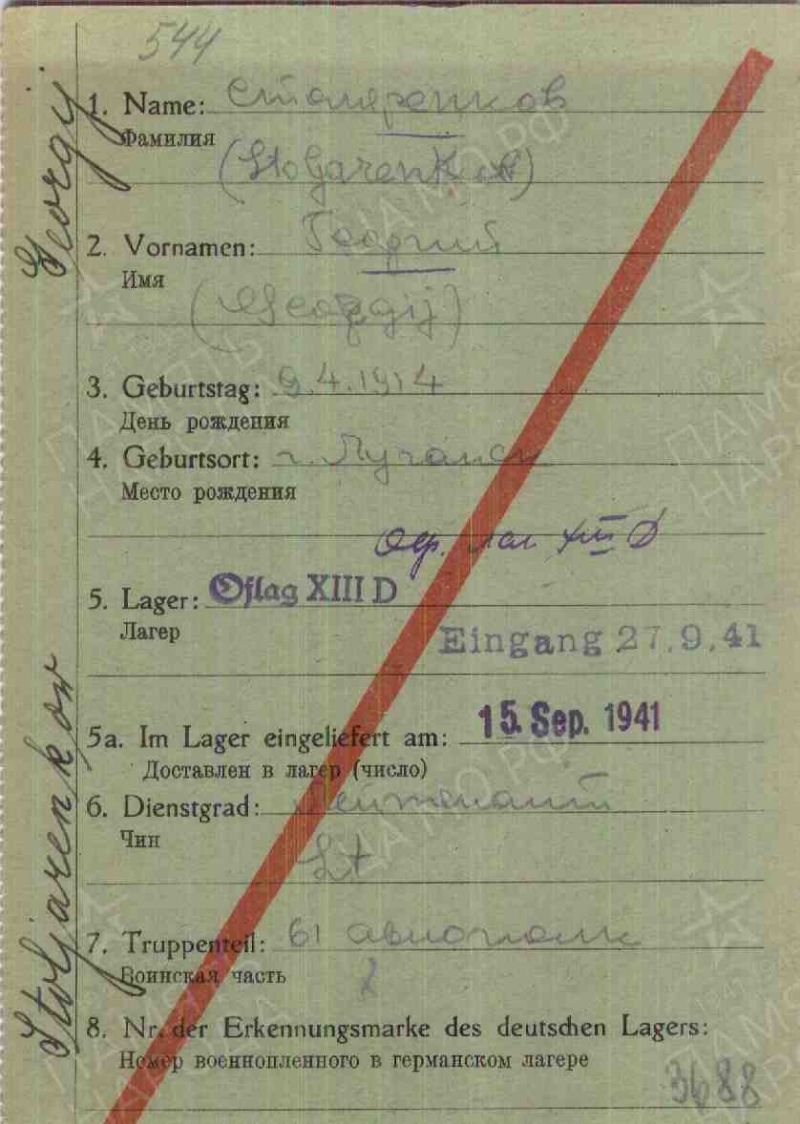 544
1. Name: Столяренков
Фамилия
(Stoljarenkow)
2. Vornamen: Георгий
Имя
(Georgij)
3. Geburtstag: 9.4.1914
День рождения
4. Geburtsort: г. Луганск
Место рождения
Оф. лаг XIII D
5. Lager: Oflag XIII D
Лагер
Eingang 27.9.41
5a. Im Lager eingeliefert am: 15. Sep. 1941
Доставлен в лагер (число)
6. Dienstgrad: Лейтенант
Чин
Lt
7. Truppenteil: 61 авиополк
Воинская часть
8. Nr. der Erkennungsmarke des deutschen Lagers:
Номер военнопленного в германском лагере
3688
Stoljarenkow Georgij
ПАМЯТЬ НАРОДА
ЦАМО РФ